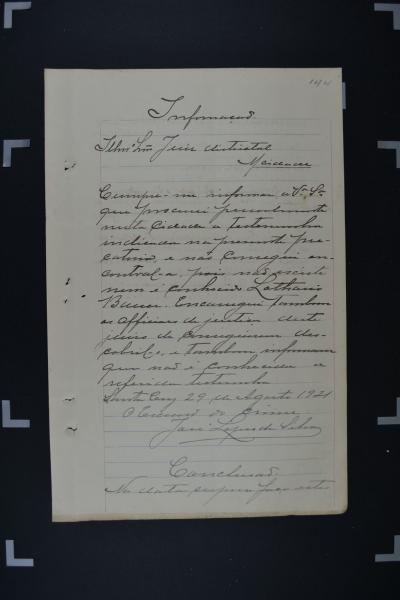 Informação
Illmo Snr Juiz districtal
Cumpre-me informar a V. Sa.
que procurei pessoalmente
nesta Cidade a testemunha
indicada na presente pre-
catoria, e não consegui en-
contral-a, pois não existe
nem é conhecido Lothario
Bauer. Encarreguei tambem
os officiaes de justiça deste
juizo de conseguirem des-
cobril-o, e tambem informam
que não é conhecida a
referida testemunha
Santa Cruz 29 de Agosto 1921
O Escrivão do Crime
José da Silva
Conclusão
Na data supra faço estes